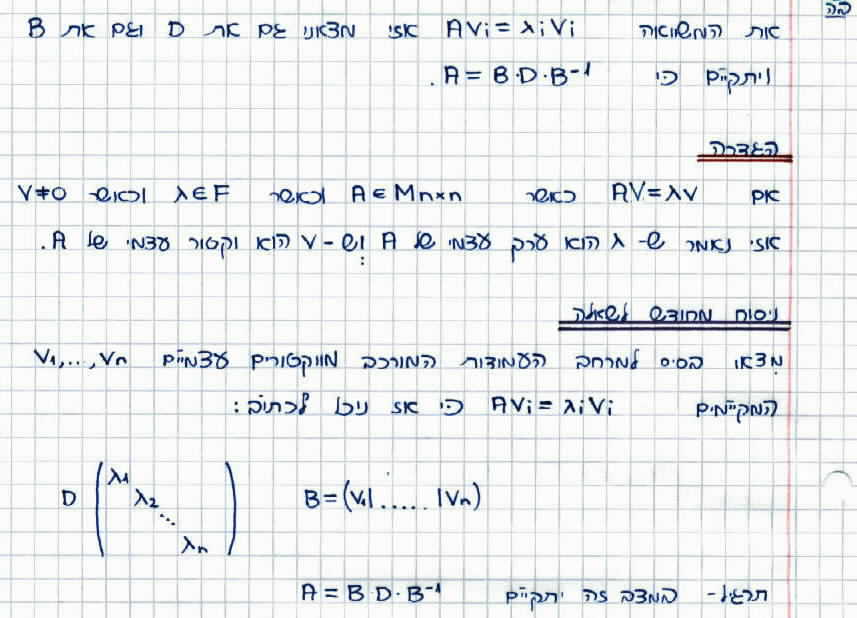 בה
את המשוואה AVi = λiVi אזי מצאנו גם את D וגם את B
ויתקיים כי A = B·D·B⁻¹.
הגדרה
אם AV=λV כאשר A ∈ Mn×n וכאשר λ∈F וכאשר V≠0
אזי נאמר ש- λ הוא ערך עצמי של A וש- V הוא וקטור עצמי של A.
ניסוח מחודש לשאלה
מצאו בסיס למרחב העמודות המורכב מווקטורים עצמיים V1,...,Vn
המקיימים AVi = λiVi כי אז נוכל לכתוב:
D (λ1 λ2 ... λn) B=(V1|.....|Vn)
תרגיל- במצב זה יתקיים A = B·D·B⁻¹